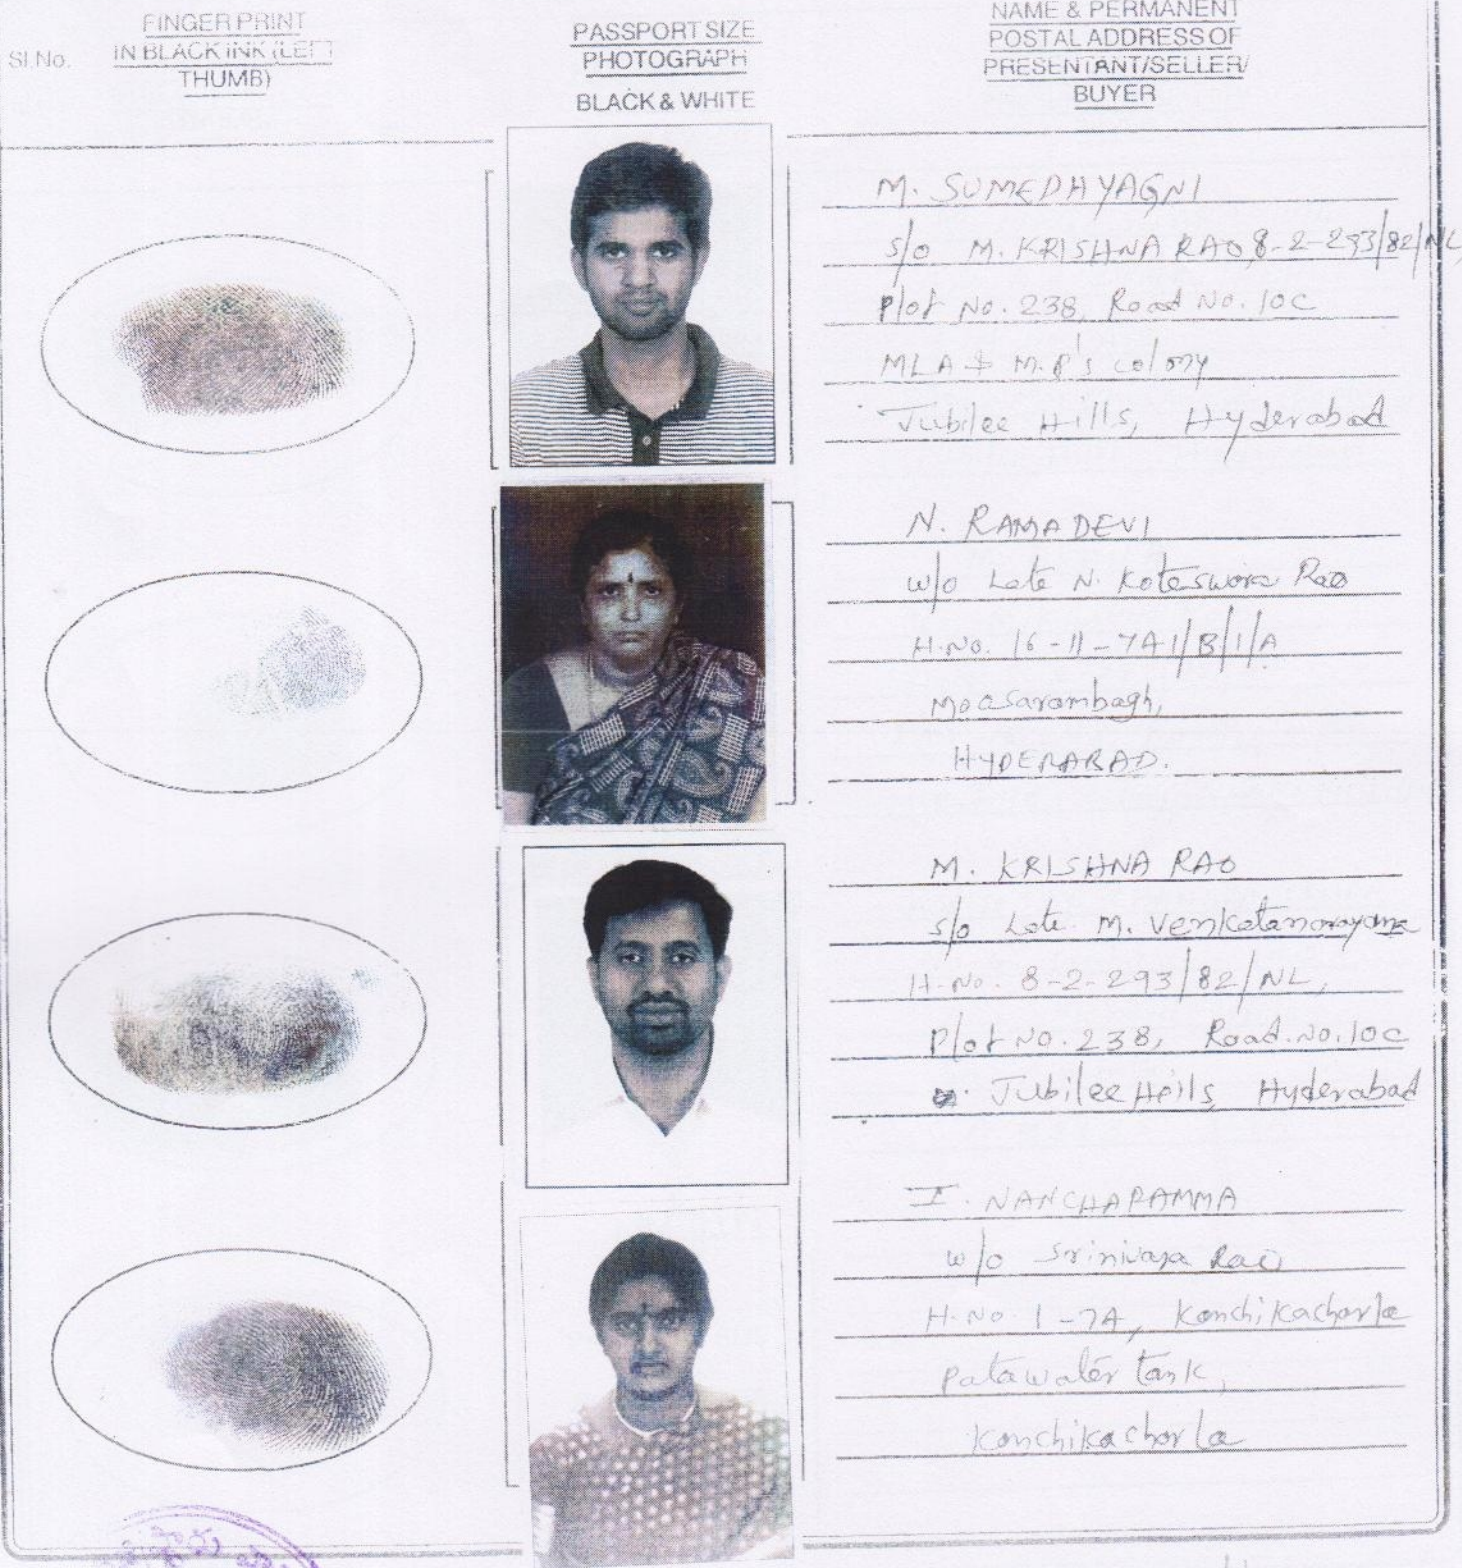 Sl.No.
FINGER PRINT
IN BLACK INK (LEFT
THUMB)
PASSPORT SIZE
PHOTOGRAPH
BLACK & WHITE
NAME & PERMANENT
POSTAL ADDRESS OF
PRESENTANT/SELLER/
BUYER
M. SUMEDHAYAGNI
S/o M. KRISHNA RAO, 8-2-293/82/NL,
Plot No. 238, Road No. 10C
MLA & M.P's colony
Jubilee Hills, Hyderabad
N. RAMADEVI
w/o Late N. Koteswara Rao
H.No. 16-11-741/B/1/A
Moosarambagh,
HYDERABAD.
M. KRISHNA RAO
s/o Late. M. Venkatanarayana
H.No. 8-2-293/82/NL,
Plot No. 238, Road.No.10C
Jubilee Hills Hyderabad
I. NANCHARAMMA
w/o Srinivasa Rao
H.No. 1-7A, Kanchikacharla
Patawater tank,
Kanchikacharla